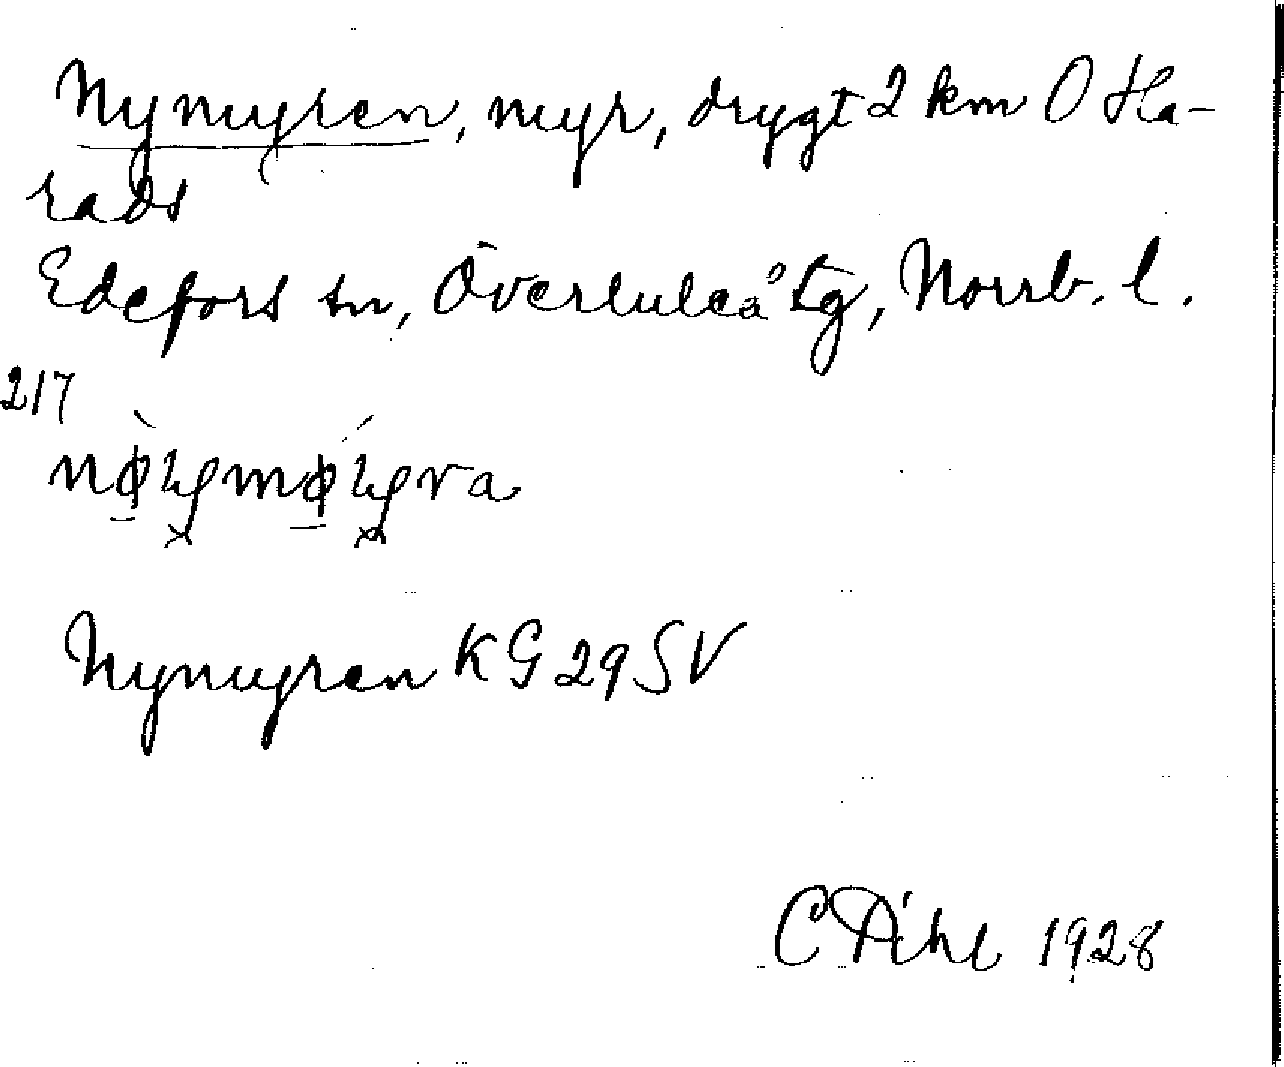 Nymyren, myr, drygt 2 km O Ha-
rads
Edefors sn, Överluleå tg, Norrb. l.
217
Nymyren KG 29 SV
C Pihl 1928